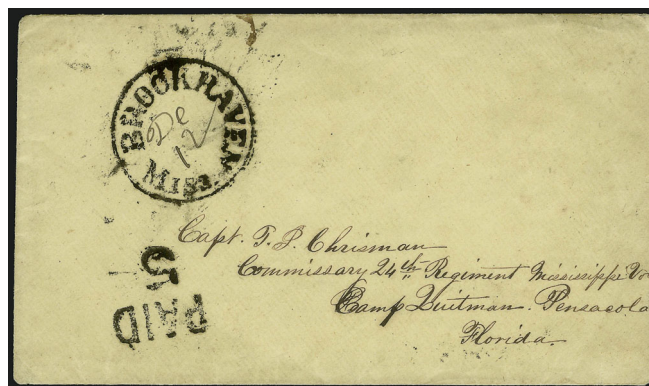 BROOKHAVEN
De
12
MISS
Capt. T. P. Chrisman
Commissary 24th Regiment Mississippi Vo
Camp Quitman. Pensacola
Florida.
5
PAID